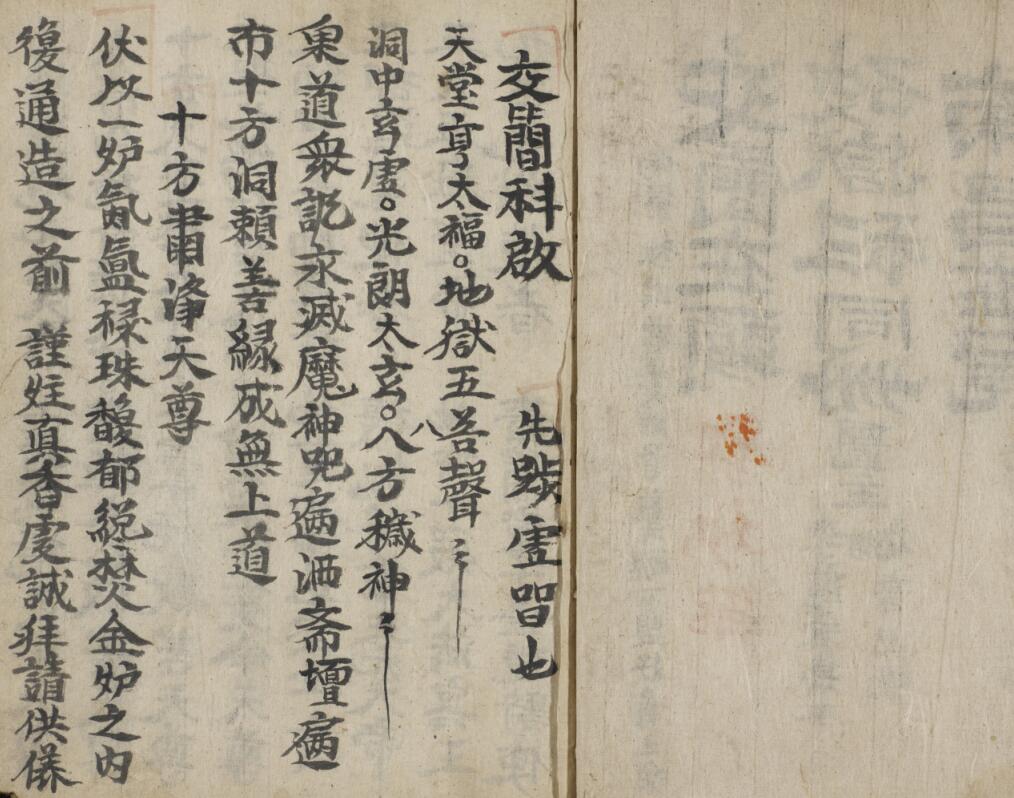 交簡科啟 先步虛習也
天堂享太福。地獄五苦聲〻
洞中玄虛。光朗太玄。八方穢神〻
稟道衆訖永滅魔神咒遍洒斋壇遍
市十方洞賴善緣成無上道
十方肅净天尊
伏以一炉氤氲禄珠馥郁纔焚金炉之内
復通造之前 謹姓真香虔誠拜請供養